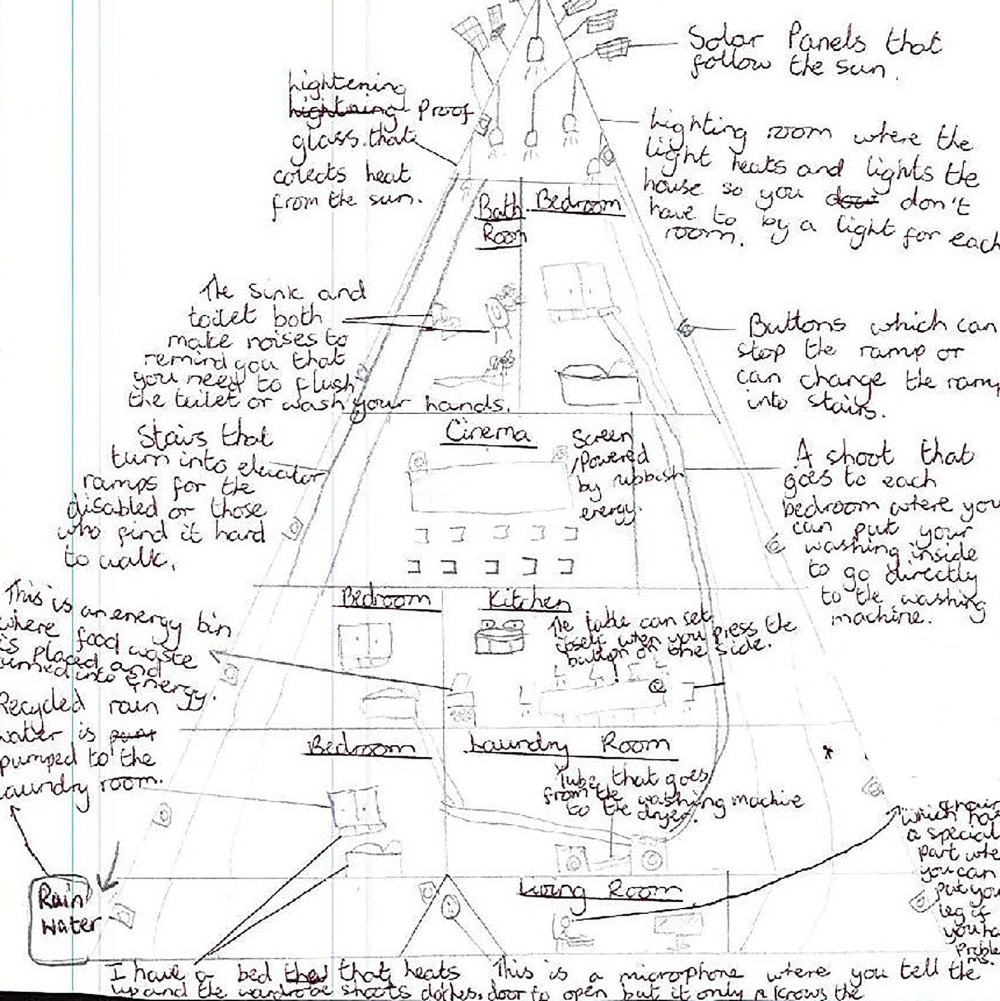 Solar Panels that
follow the sun.
Lightening
lightning Proof
glass that
colects heat
from the sun.
Lighting room where the
light heats and lights the
house so you don't
have to by a light for each
room.
Bath
Room
Bedroom
The sink and
toilet both
make noises to
remind you that
you need to flush
the toilet or wash your hands.
Buttons which can
stop the ramp or
can change the ramp
into stairs.
Stairs that
turn into elevator
ramps for the
disabled or those
who find it hard
to walk.
Cinema
Screen
Powered
by rubbish
energy.
A shoot that
goes to each
bedroom where you
can put your
washing inside
to go directly
to the washing
machine.
This is an energy bin
where food waste
is placed and
turned into energy.
Bedroom
Kitchen
The table can set
itself when you press the
button on the side.
Recycled rain
water is
pumped to the
laundry room.
Bedroom
Laundry Room
Tube that goes
from the washing machine
to the dryer.
chair
which has
a special
part where
you can
put your
leg if
you have
Proble
ms.
Rain
water
Living Room
I have a bed that heats
up and the wardrobe shoots clothes.
This is a microphone where you tell the
door to open but it only knows the